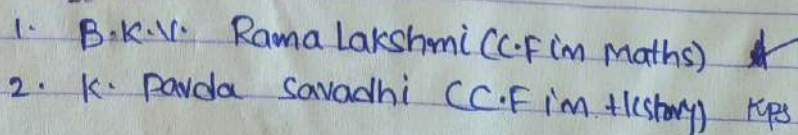 1. B.K.V. Rama Lakshmi (C.F in Maths)
2. K. Pavda Savadhi (C.F in History) KPS